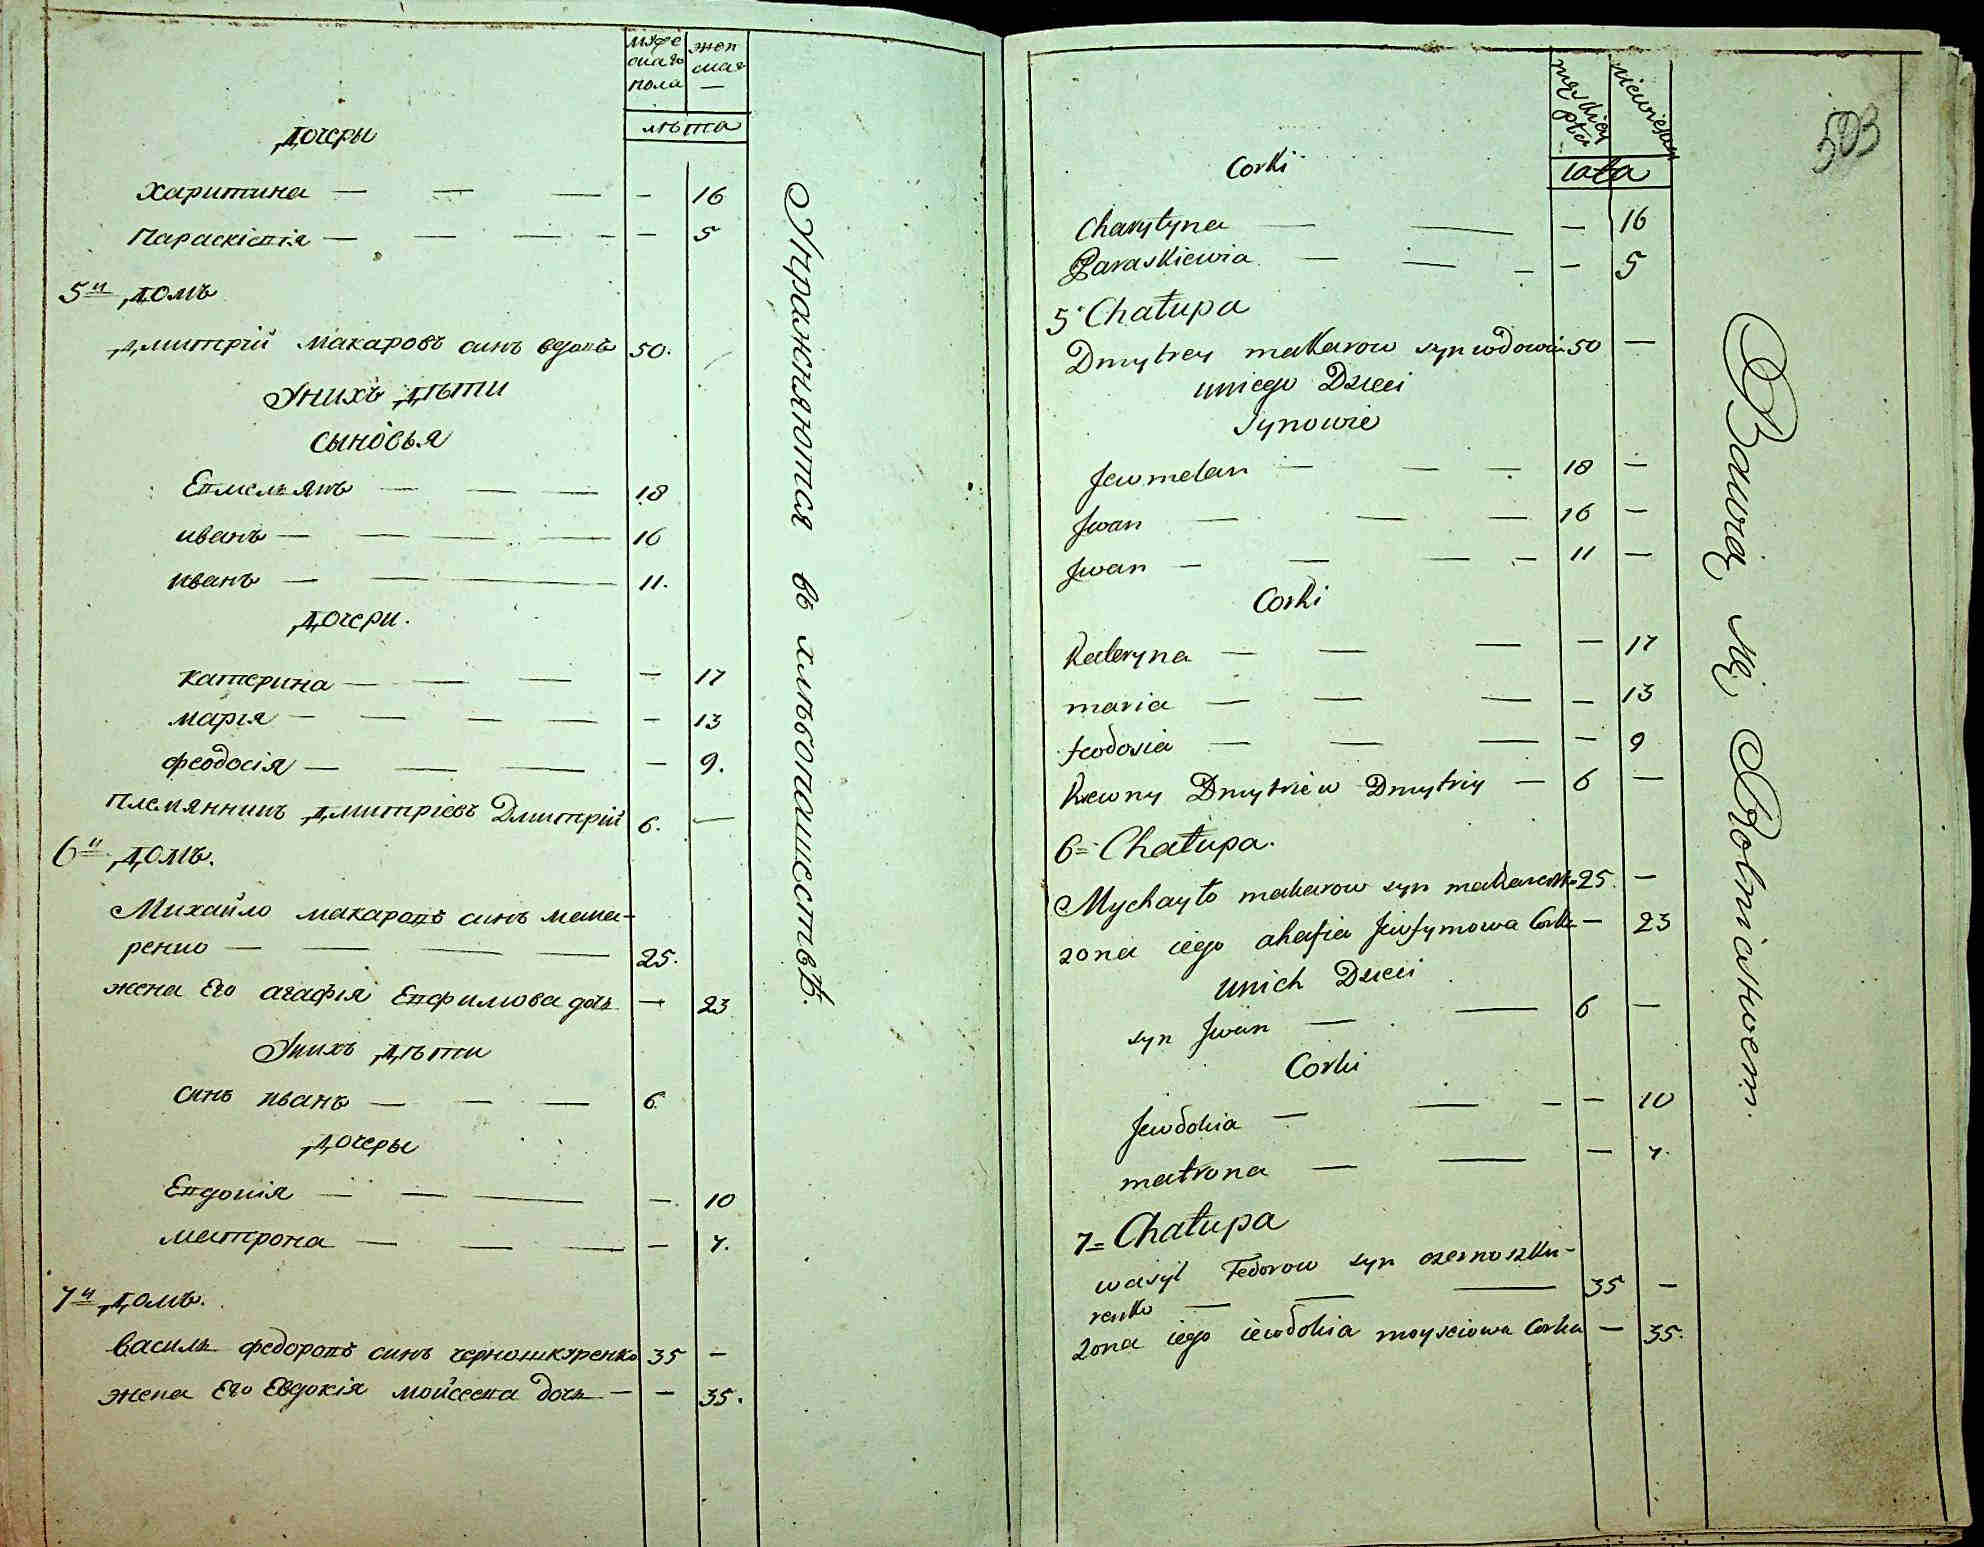 мужескаго пола женская —
лѣта
дочеры
харитина — — — — 16
Параскієвія — — — — — 5
5й домъ
дмитрій макаровъ синъ вдовъ 50.
Унихъ дѣти
сыновья
Евмельянъ — — — 18
иванъ — — — — 16
иванъ — — — 11.
дочери.
катерина — — — — 17
марія — — — — — 13
феодосія — — — — 9.
племянникъ дмитріевъ Дмитрій 6. —
6й домъ.
Михайло макаровъ синъ мака-
ренко — — — — 25.
жена Его агафія Евфимова дочь — 23
Унихъ дѣти
синъ иванъ — — — 6.
дочеры
Евдокія — — — — 10
матрона — — — — — 7.
7й домъ.
василь федоровъ синъ черношкуренко 35 —
жена Его Евдокія мойсеева дочь — — 35.
Упражняются въ хлѣбопашествѣ.
503
męskiey płci niewieskiey
lata
Corki
Charytyna — — — 16
Paraskiewia — — — — 5
5 Chałupa
Dmytrey makarow syn wdowiec 50 —
uniego Dzieci
Synowie
Jewmelan — — — 18 —
Jwan — — — 16 —
Jwan — — — — 11 —
Corki
Kateryna — — — — 17
maria — — — — 13
feodosia — — — — 9
Krewny Dmytriew Dmytriy — 6 —
6= Chałupa.
Mychayło makarow syn makarenko 25. —
zona iego ahafia Jewfymowa Corka — 23
unich Dzieci
syn Jwan — — 6 —
Corki
Jewdokia — — — — 10
matrona — — — 7.
7= Chałupa
wasyl Fedorow syn czernoszku-
renko — — — 35 —
zona iego iewdokia moyseiowa Corka — 35.
Bawią się Rolniactwem.